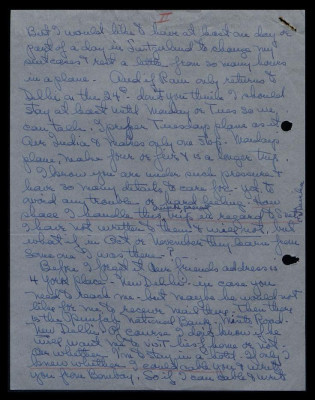 II
But I would like to have at least one day or
part of a day in Switzerland to change my
suitcases & rest a little from so many hours
in a plane. And if Ram only returns to
Delhi on the 24th don't you think I should
stay at least until Monday or Tues so we
can talk. I prefer Tuesday's plane as it
Air India & makes only one stop. Monday's
plane makes four or five & is a longer trip.
I know you are under such pressure &
have so many details to care for. Yet to
avoid any troubles or hard feeling - how
please I handle this trip in regard to
I have not written to them & will not, but
what if in Oct or November they learn from
someone I was there - ?
Before I forget it Our friends address is
4 place - New Delhi - in case you
need to reach me - but maybe he would not
like for me to receive mail there. Then there
is the Punjab National Bank, Road -
New Delhi. Of course I don't know if he
will want me to visit his home or not
or whether I'm to stay in a hotel. If only I
knew whether I could cable you & write
you from Bombay, so if I can cable & write